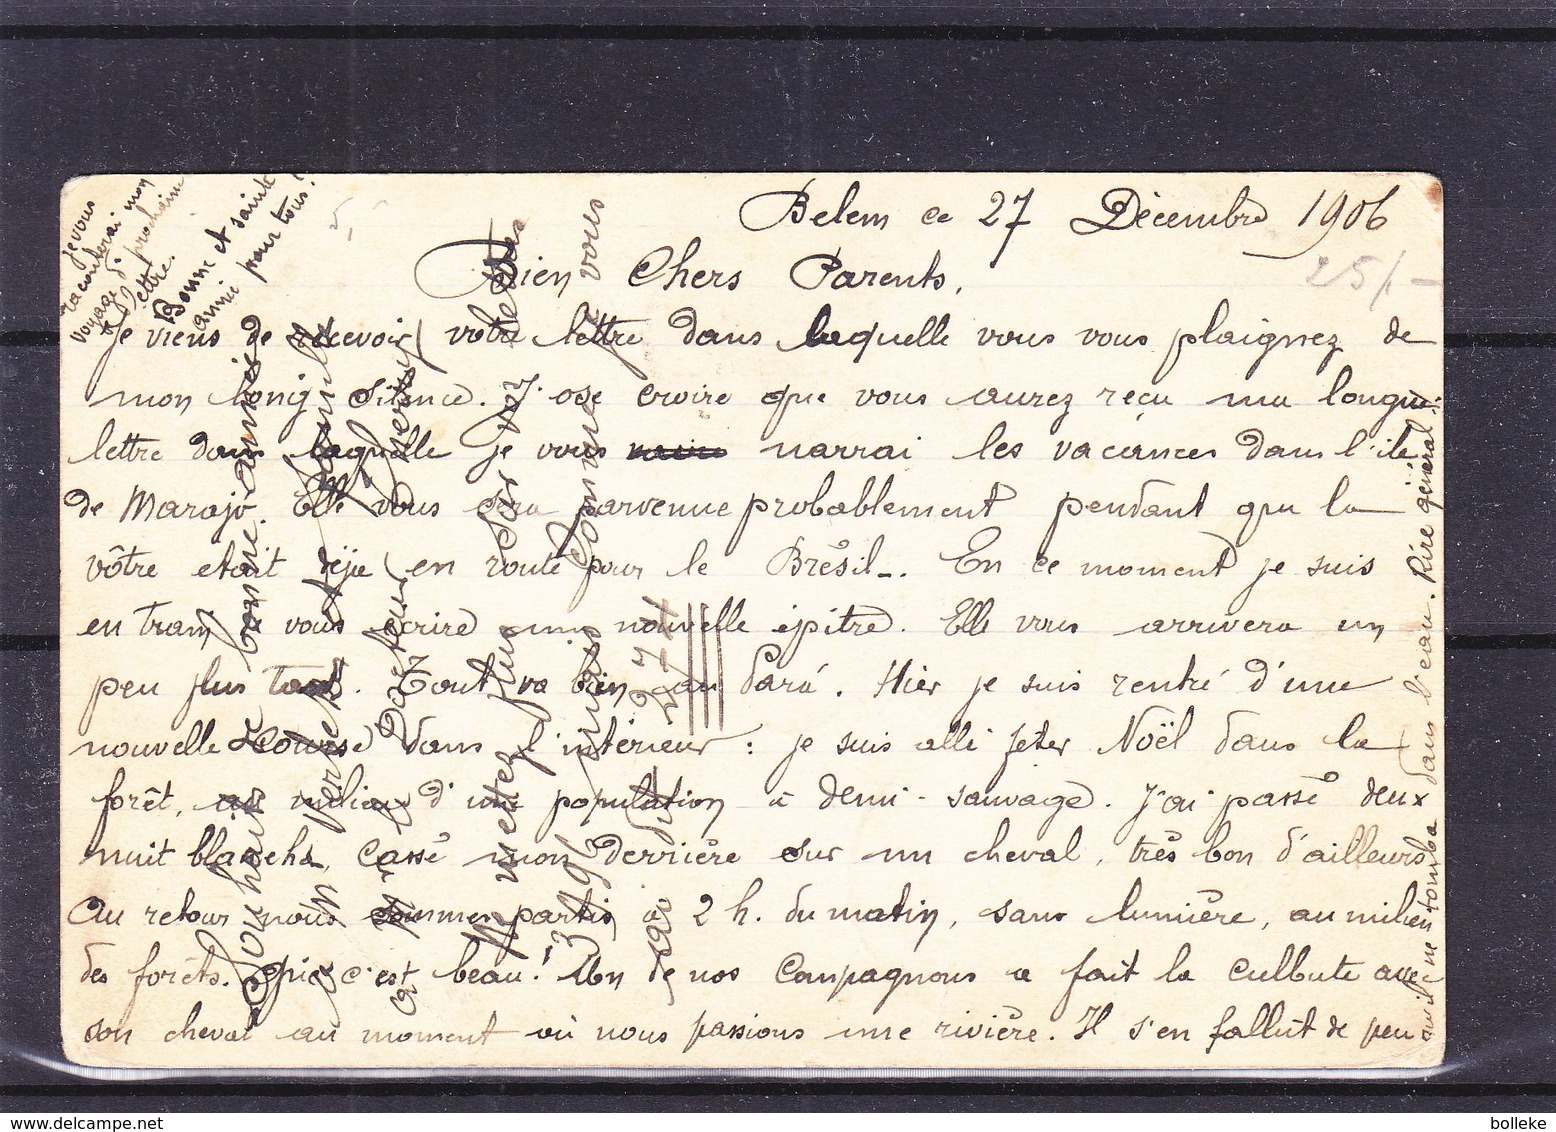 Belem ce 27 Décembre 1906
Bien Chers Parents,
Je viens de recevoir votre lettre dans laquelle vous vous plaignez de
mon long silence. J'ose croire que vous aurez reçu ma longue
lettre dans laquelle je vous narrai les vacances dans l'ile
de Marajo. Elle vous sera parvenue probablement pendant que la
vôtre etait déja en route pour le Brésil_. En ce moment je suis
en train vous ecrire une nouvelle épitre. Elle vous arrivera un
peu plus tard. Tout va bien au Pará. Hier je suis rentré d'une
nouvelle course dans l'intérieur : je suis allé feter Noël dans la
forêt, au milieu d'une population à demi-sauvage. J'ai passé deux
nuit blanche, cassé mon derrière sur un cheval, très bon d'ailleurs
Au retour nous sommes partis à 2 h. du matin, sans lumière, au milieu
des forêts. Que c'est beau! Un de nos compagnons a fait la culbute avec
son cheval au moment où nous passions une rivière. Il s'en fallut de peu
qu'il ne tomba dans l'eau. Rire général.
je vous
raconterai mon
voyage d'
prochaine
lettre.
Bonne et sainte
année pour tous!
Souhaits bonne année
famille
Docteur
Ne mettez plus sur vos lettres
3496 mais comme je vous
ai dit 274
25/-
bolleke